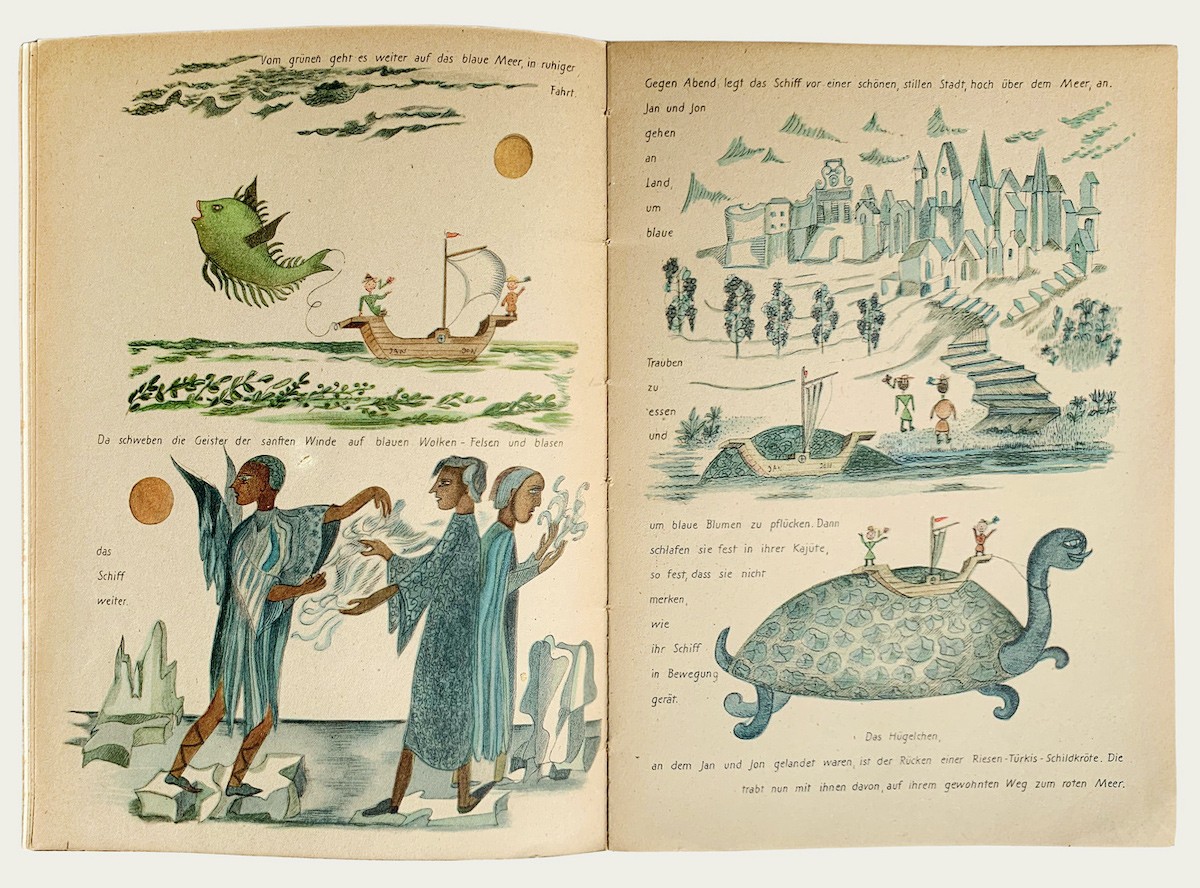 Vom grünen geht es weiter auf das blaue Meer, in ruhiger
Fahrt.
JAN JON
Da schweben die Geister der sanften Winde auf blauen Wolken-Felsen und blasen
das
Schiff
weiter.
Gegen Abend legt das Schiff vor einer schönen, stillen Stadt, hoch über dem Meer, an.
Jan und Jon
gehen
an
Land,
um
blaue
Trauben
zu
essen
und
JAN JON
um blaue Blumen zu pflücken. Dann
schlafen sie fest in ihrer Kajüte,
so fest, dass sie nicht
merken,
wie
ihr Schiff
in Bewegung
gerät.
Das Hügelchen,
an dem Jan und Jon gelandet waren, ist der Rücken einer Riesen-Türkis-Schildkröte. Die
trabt nun mit ihnen davon, auf ihrem gewohnten Weg zum roten Meer.